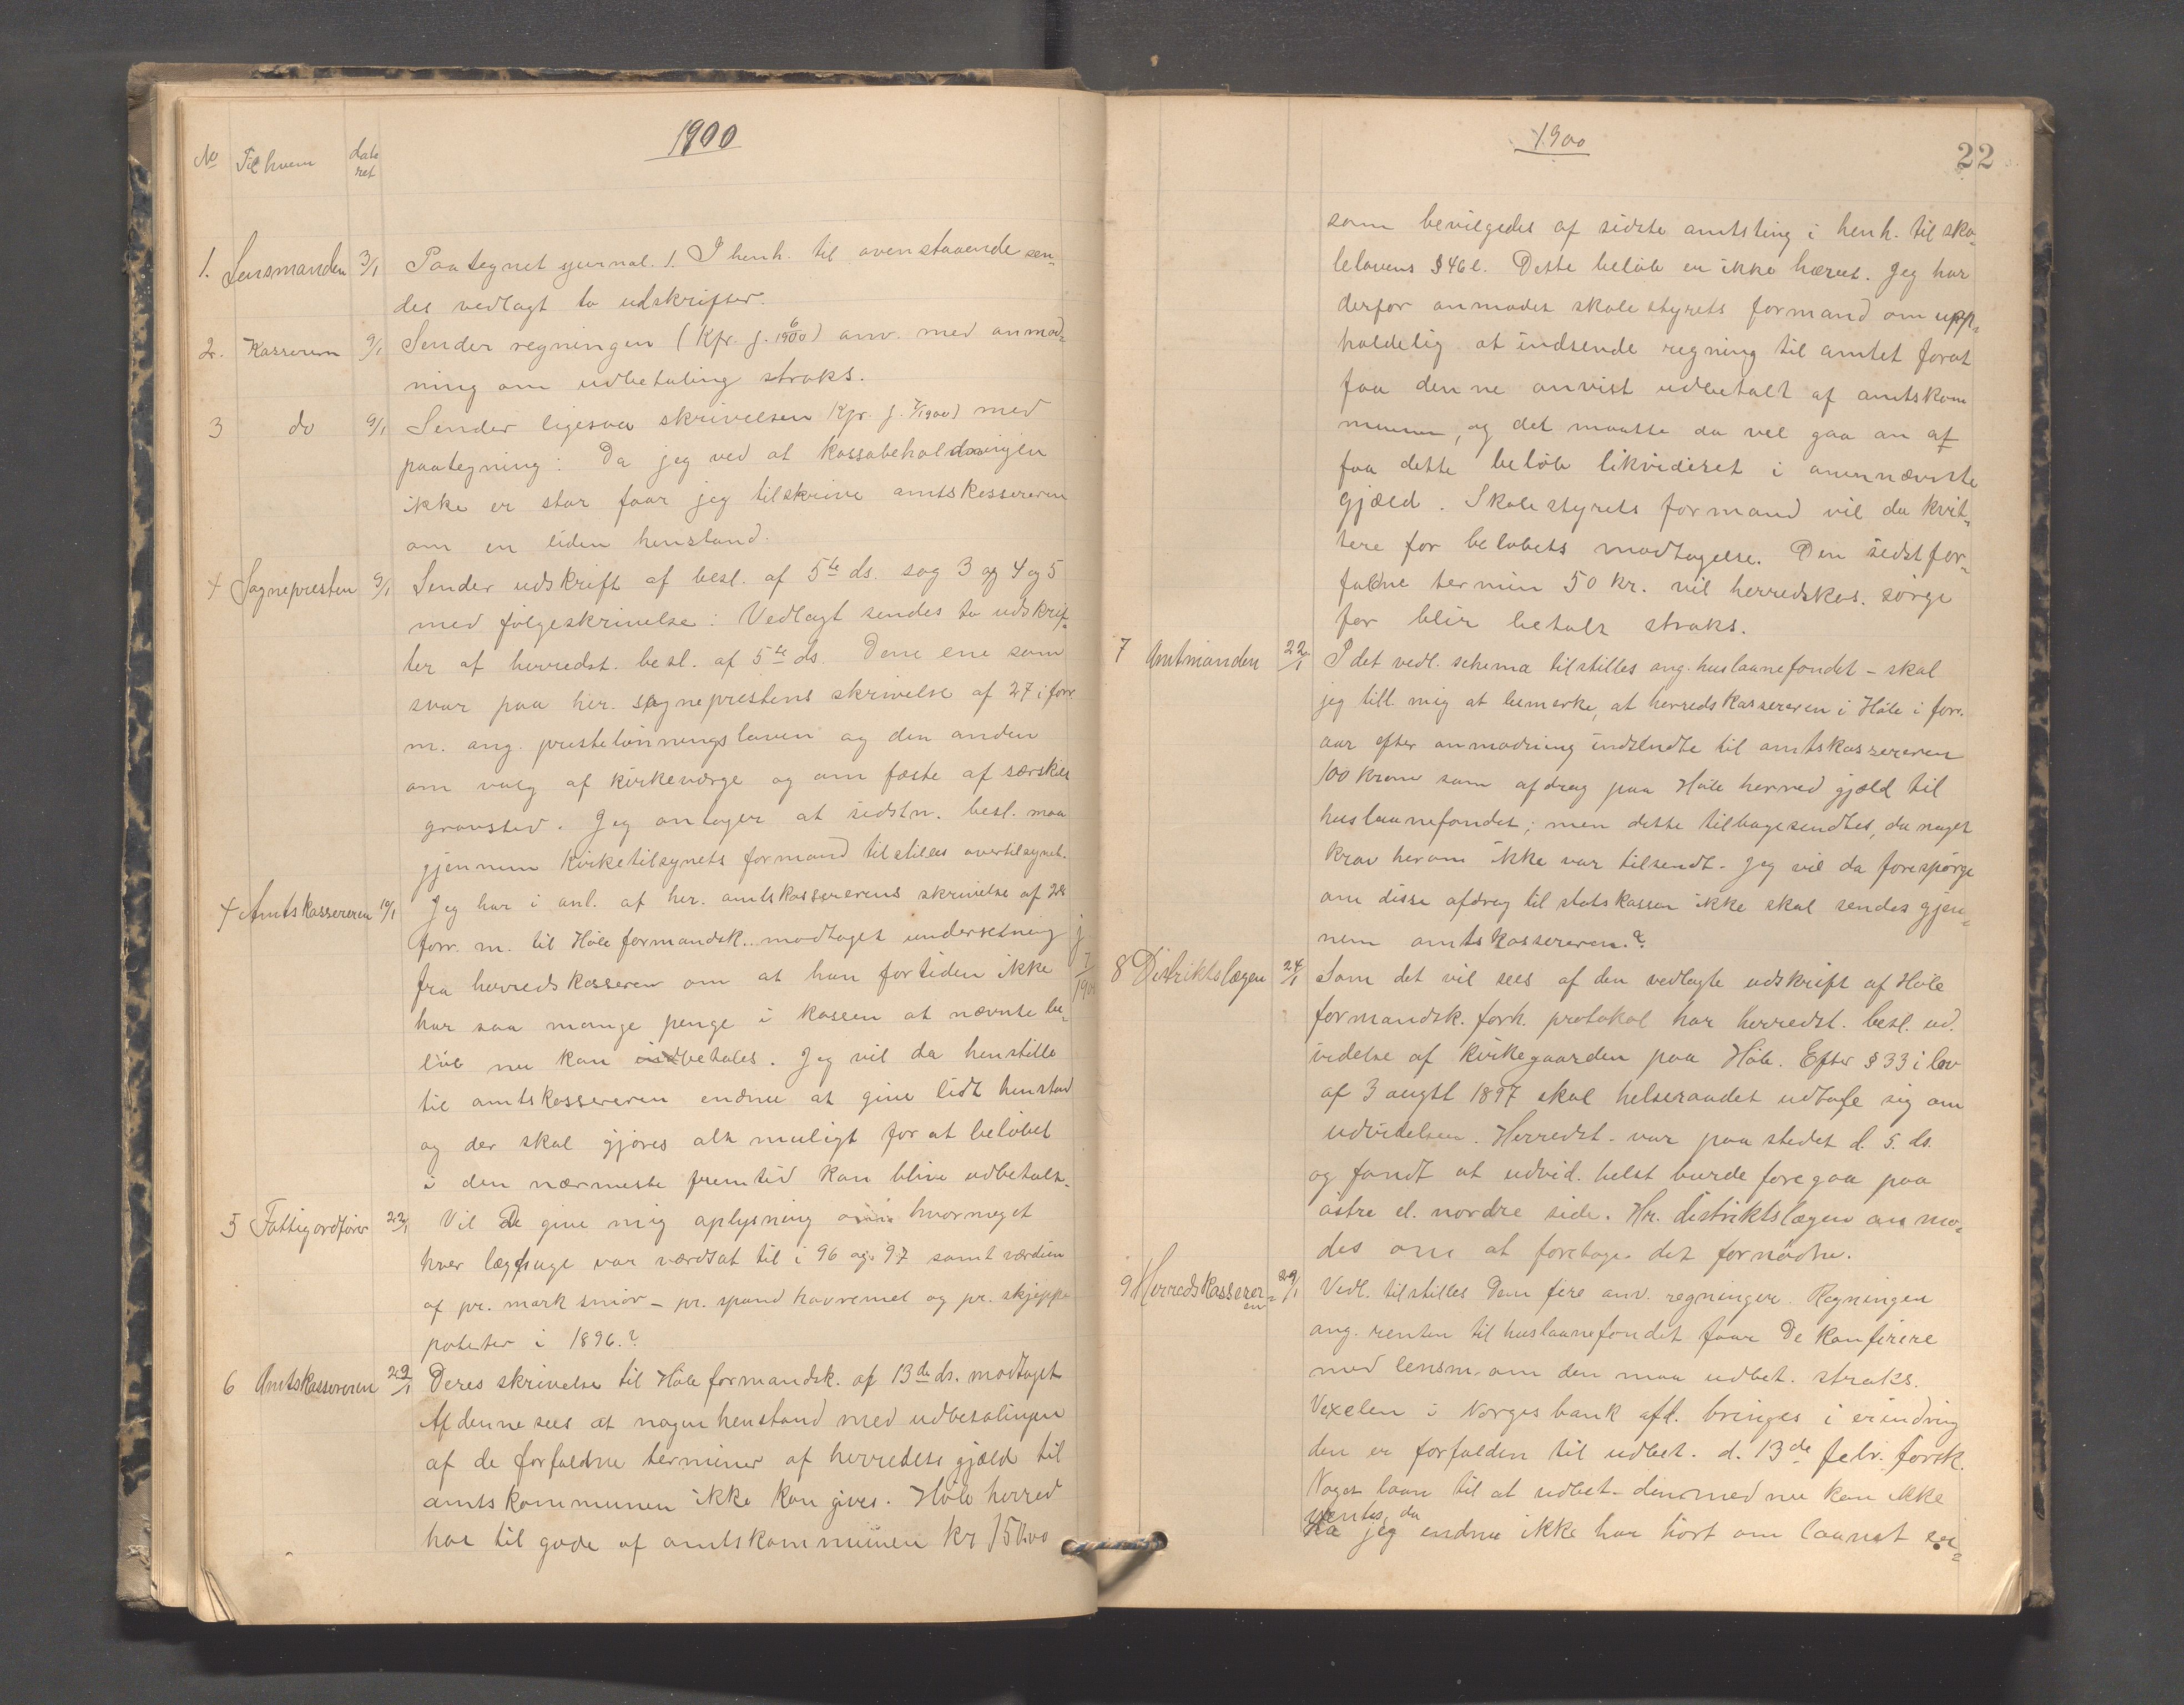 1900
No Til hvem dateret
1. Lensmanden 3/1 Paategnet gjurnal. 1. I henh. til ovenstaaende sen-
des vedlagt to udskrifter.
2. Kasseren 9/1 Sender regningen (Kfr. j. 6/1900) anv. med anmod-
ning om udbetaling straks.
3 do 9/1 Sender ligesaa skrivelsen Kfr. j. 7/1900) med
paategning: Da jeg ved at kassabeholdningen
ikke er stor faar jeg tilskrive amtskassereren
om en liden henstand.
4 Sognepresten 9/1 Sender udskrift af besl. af 5te ds. sag 3 og 4 og 5
med følgeskrivelse: Vedlagt sendes to udskrif-
ter af herredst. besl. af 5te ds. Den ene som
svar paa her. sogneprestens skrivelse af 27 i forr.
m. ang. prestelønningsloven og den anden
om valg af kirkeværge og om fæste af særskilt
gravsted. Jeg antager at sidstn. besl. maa
gjennem kirketilsynets formand tilstilles overtilsynet.
4 Amtskassereren 10/1 Jeg har i anl. af her. amtskassererens skrivelse af 28
forr. m. til Høle formandsk. modtaget underretning j
fra herredskasseren om at han fortiden ikke 7/1900
har saa mange penge i kassen at nævnte be-
løb nu kan indbetales. Jeg vil da henstille
til amtskassereren endnu at give lidt henstand
og der skal gjøres alt muligt for at beløbet
i den nærmeste fremtid kan blive udbetalt.
5 Fattigordfører 22/1 Vil De give mig oplysning om hvormeget
hver lægdsuge var værdsat til i 96 og 97 samt værdien
af pr. mark smør – pr. spand havremel og pr. skjeppe
poteter i 1896.?
6 Amtskassereren 22/1 Deres skrivelse til Høle formandsk. af 13de ds. modtaget
Af denne sees at nogen henstand med udbetalingen
af de forfaldne terminer af herredets gjæld til
amtskommunen ikke kan gives. Høle herred
har til gode af amtskommunen kr 150.00
1900
22
som bevilgedes af sidste amtsting i henh. til sko-
lelovens § 46 l. Dette beløb er ikke hævet. Jeg har
derfor anmodet skolestyrets formand om upp-
holdelig at indsende regning til amtet forat
faa denne anvist udbetalt af amtskom
munen, og det maatte da vel gaa an at
faa dette beløb likvideret i ovennævnte
gjæld. Skolestyrets formand vil da kvit-
tere for beløbets modtagelse. Den sidst for-
faldne termin 50 kr. vil herredskas. sørge
for blir betalt straks.
7 Amtmanden 22/1 I det vedl. schema tilstilles ang. huslaanefondet – skal
jeg till. mig at bemerke, at herredskassereren i Høle i forr.
aar efter anmodning indsendte til amtskassereren
100 kroner som afdrag paa Høle herred gjæld til
huslaanefondet; men dette tilbagesendtes, da noget
krav herom ikke var tilsendt. Jeg vil da forespørge
om disse afdrag til statskassen ikke skal sendes gjen-
nem amtskassereren.?
8 Distriktslægen 24/1 Som det vil sees af den vedlagte udskrift af Høle
formandsk. forh. protokol har herredst. besl. ud.
videlse af kirkegaarden paa Høle. Efter § 33 i lov
af 3 augst 1897 skal helseraadet udtale sig om
udvidelsen. Herredst. var paa stedet d. 5. ds.
og fandt at udvid. helst burde foregaa paa
østre el. nordre side. Hr. distriktslægen anmo-
des om at foretage det fornødne.
9 Herredskasserer-
en 29/1 Vedl. tilstilles Dem fire anv. regninger. Regningen
ang. renten til huslaanefondet faar De konferere
med lensm. om den maa udbet. straks.
Vexelen i Norges bank afd. bringes i erindring
den er forfalden til udbet. d. 13de febr. førstk.
Noget laan til at udbet. den med nu kan ikke
ventes, da
jeg endnu ikke har hørt om laanet er-